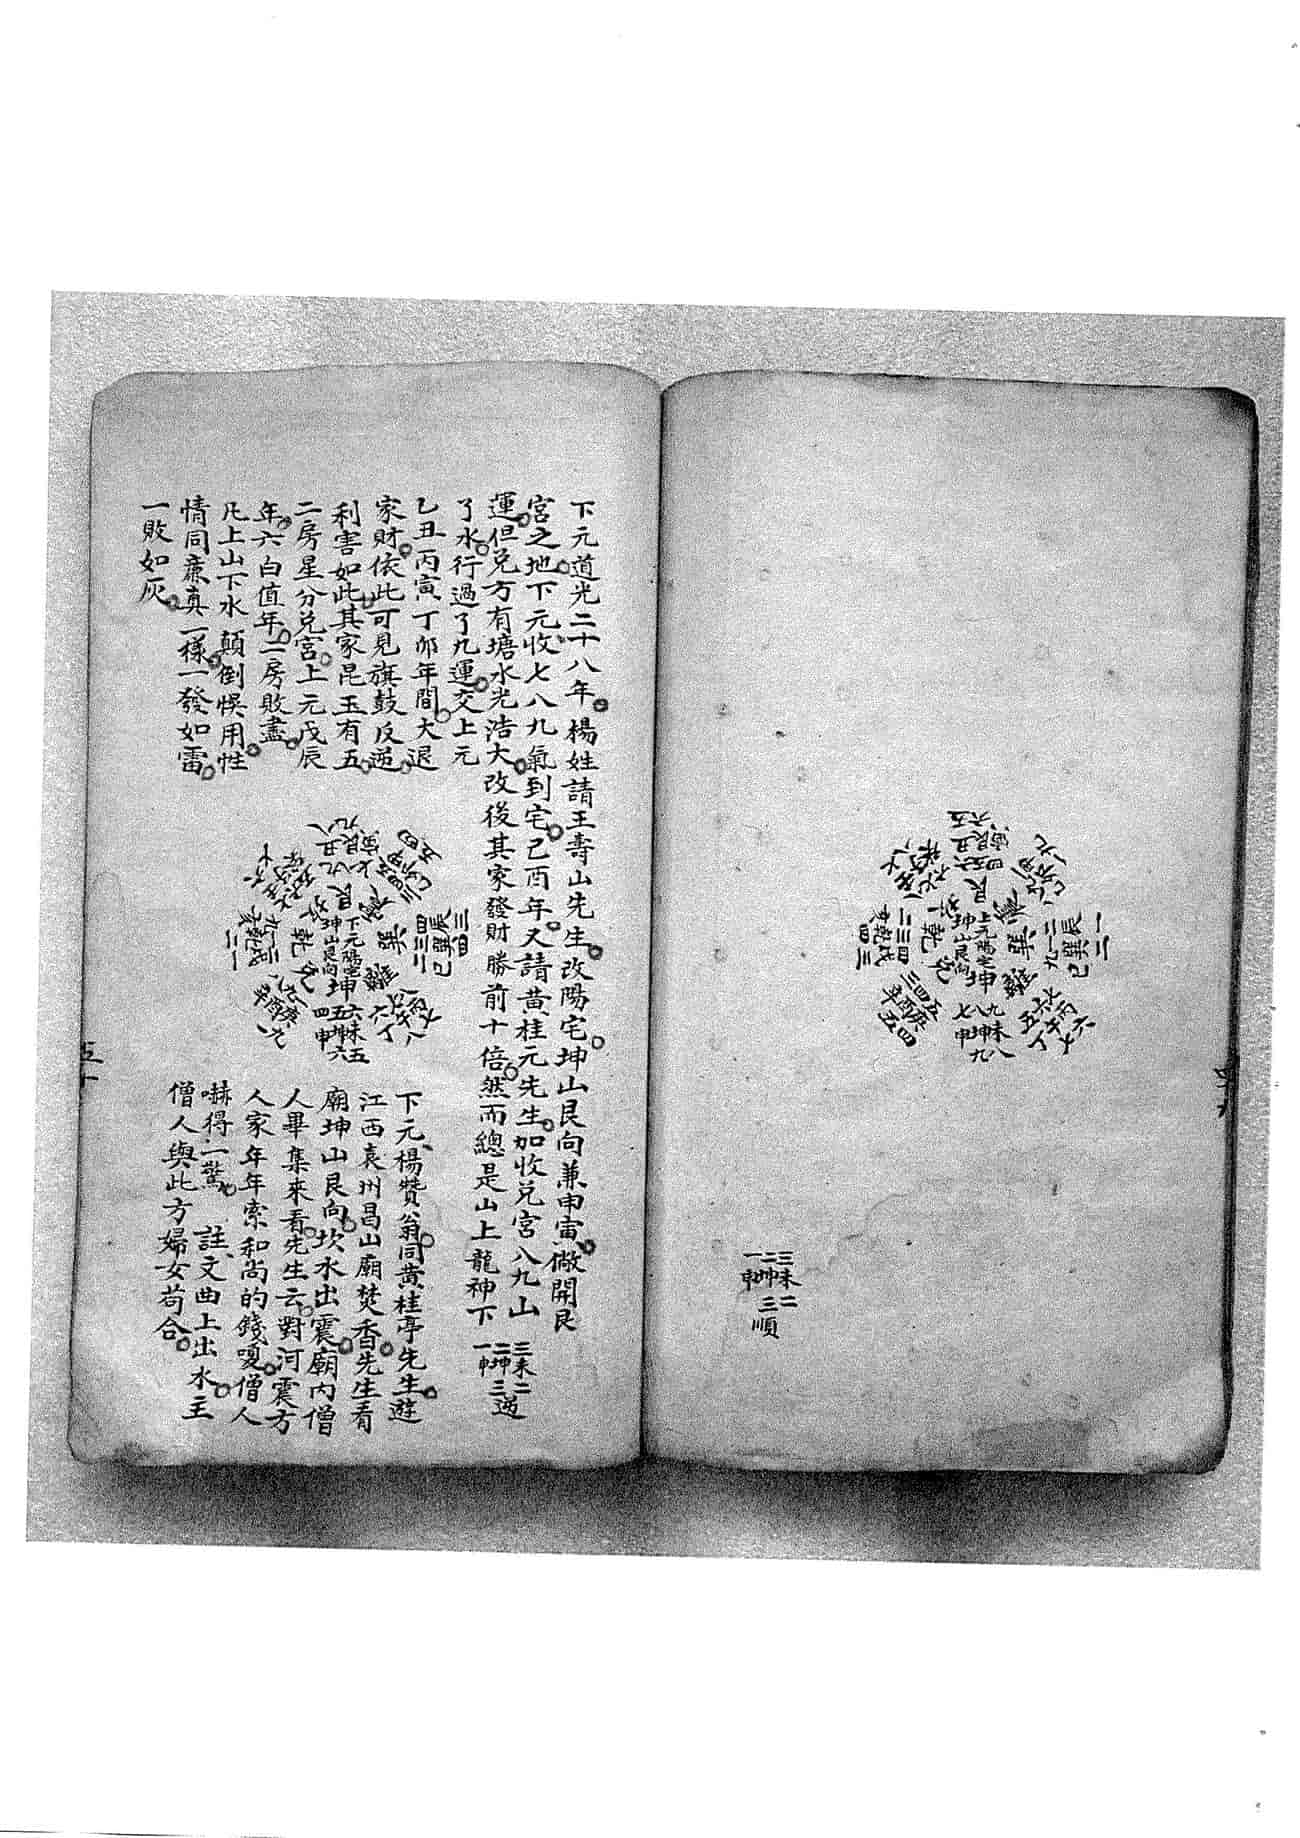 上元陽宅
坤山艮向
三未二
二坤三順
一申
四十九
下元道光二十八年楊姓請王壽山先生改陽宅坤山艮向兼申寅儆開艮
宮之地下元收七八九氣到宅己酉年又請黃桂元先生加收兌宮八九山
運但兌方有塘水光浩大改後其家發財勝前十倍然而總是山上龍神下
三未二
二坤三逆
一申
了水行過了九運交上元
乙丑丙寅丁卯年間大退
家財依此可見旗鼓反逆
利害如此其家昆玉有五
二房星分兌宮上元戊辰
年六白值年二房敗盡
凡上山下水顛倒悞用性
情同廉真一樣一發如雷
一敗如灰
下元陽宅
坤山艮向
下元楊贊翁同黃桂亭先生遊
江西袁州昌山廟焚香先生看
廟坤山艮向坎水出震廟內僧
人畢集來看先生云對河震方
人家年年索和尚的錢嗄僧人
嚇得一驚 註文曲上出水主
僧人與此方婦女苟合
五十